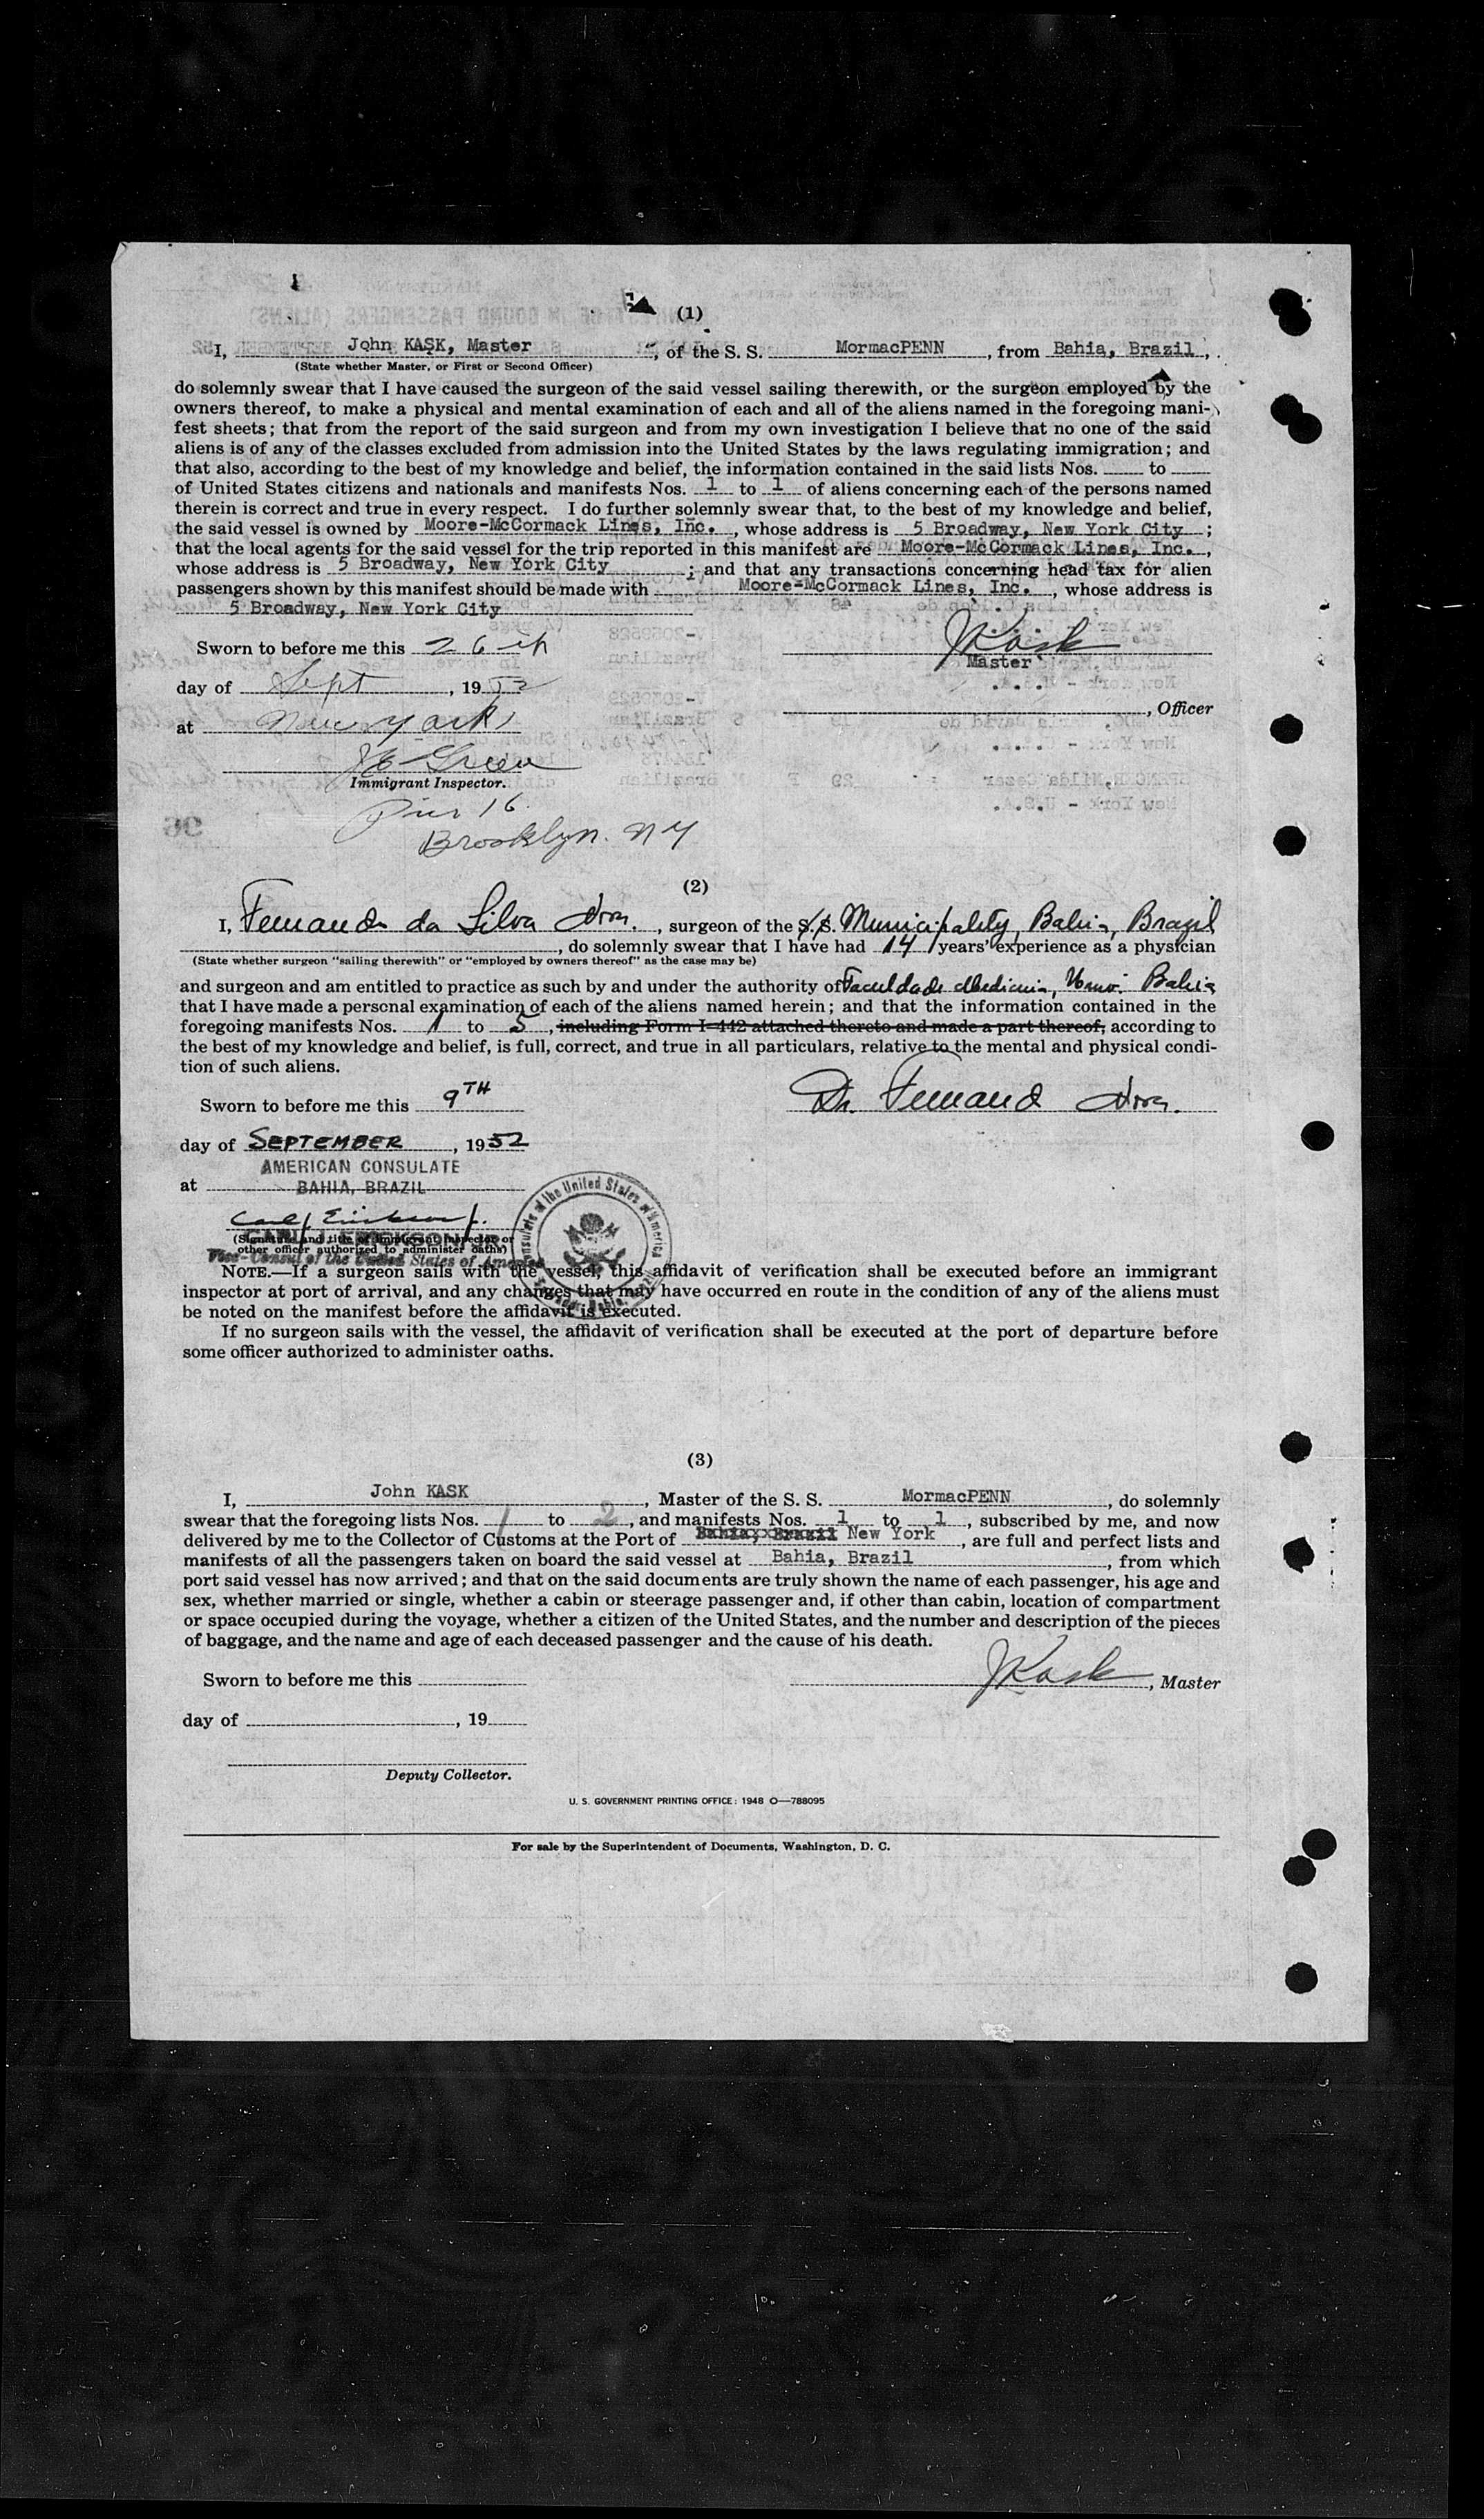 (1)
I, John KASK, Master, of the S. S. MormacPENN, from Bahia, Brazil,
(State whether Master, or First or Second Officer)
do solemnly swear that I have caused the surgeon of the said vessel sailing therewith, or the surgeon employed by the
owners thereof, to make a physical and mental examination of each and all of the aliens named in the foregoing mani-
fest sheets; that from the report of the said surgeon and from my own investigation I believe that no one of the said
aliens is of any of the classes excluded from admission into the United States by the laws regulating immigration; and
that also, according to the best of my knowledge and belief, the information contained in the said lists Nos. ........ to ........
of United States citizens and nationals and manifests Nos. 1 to 1 of aliens concerning each of the persons named
therein is correct and true in every respect. I do further solemnly swear that, to the best of my knowledge and belief,
the said vessel is owned by Moore-McCormack Lines, Inc., whose address is 5 Broadway, New York City;
that the local agents for the said vessel for the trip reported in this manifest are Moore-McCormack Lines, Inc.,
whose address is 5 Broadway, New York City; and that any transactions concerning head tax for alien
passengers shown by this manifest should be made with Moore-McCormack Lines, Inc., whose address is
5 Broadway, New York City
Sworn to before me this 26th
JKask
Master
day of Sept, 1952
, Officer
at New York
Green
Immigrant Inspector.
Pier 16
Brooklyn. NY
(2)
I, Fernando da Silva, surgeon of the S.S. Municipality, Bahia, Brazil
, do solemnly swear that I have had 14 years' experience as a physician
(State whether surgeon "sailing therewith" or "employed by owners thereof" as the case may be)
and surgeon and am entitled to practice as such by and under the authority of Faculdade Medicina, Bahia
that I have made a personal examination of each of the aliens named herein; and that the information contained in the
foregoing manifests Nos. 1 to 5, including Form I-442 attached thereto and made a part thereof, according to
the best of my knowledge and belief, is full, correct, and true in all particulars, relative to the mental and physical condi-
tion of such aliens.
Sworn to before me this 9TH
Dr. Fernand
day of SEPTEMBER, 1952
AMERICAN CONSULATE
at BAHIA, BRAZIL
(Signature and title of immigrant inspector or
other officer authorized to administer oaths)
Vice-Consul of the United States of America
Consulate of the United States of America
NOTE.—If a surgeon sails with the vessel, this affidavit of verification shall be executed before an immigrant
inspector at port of arrival, and any changes that may have occurred en route in the condition of any of the aliens must
be noted on the manifest before the affidavit is executed.
If no surgeon sails with the vessel, the affidavit of verification shall be executed at the port of departure before
some officer authorized to administer oaths.
(3)
I, John KASK, Master of the S. S. MormacPENN, do solemnly
swear that the foregoing lists Nos. 1 to 2, and manifests Nos. 1 to 1, subscribed by me, and now
delivered by me to the Collector of Customs at the Port of Bahia, Brazil New York, are full and perfect lists and
manifests of all the passengers taken on board the said vessel at Bahia, Brazil, from which
port said vessel has now arrived; and that on the said documents are truly shown the name of each passenger, his age and
sex, whether married or single, whether a cabin or steerage passenger and, if other than cabin, location of compartment
or space occupied during the voyage, whether a citizen of the United States, and the number and description of the pieces
of baggage, and the name and age of each deceased passenger and the cause of his death.
Sworn to before me this
JKask, Master
day of ........, 19
Deputy Collector.
U. S. GOVERNMENT PRINTING OFFICE: 1948 O—788095
For sale by the Superintendent of Documents, Washington, D. C.